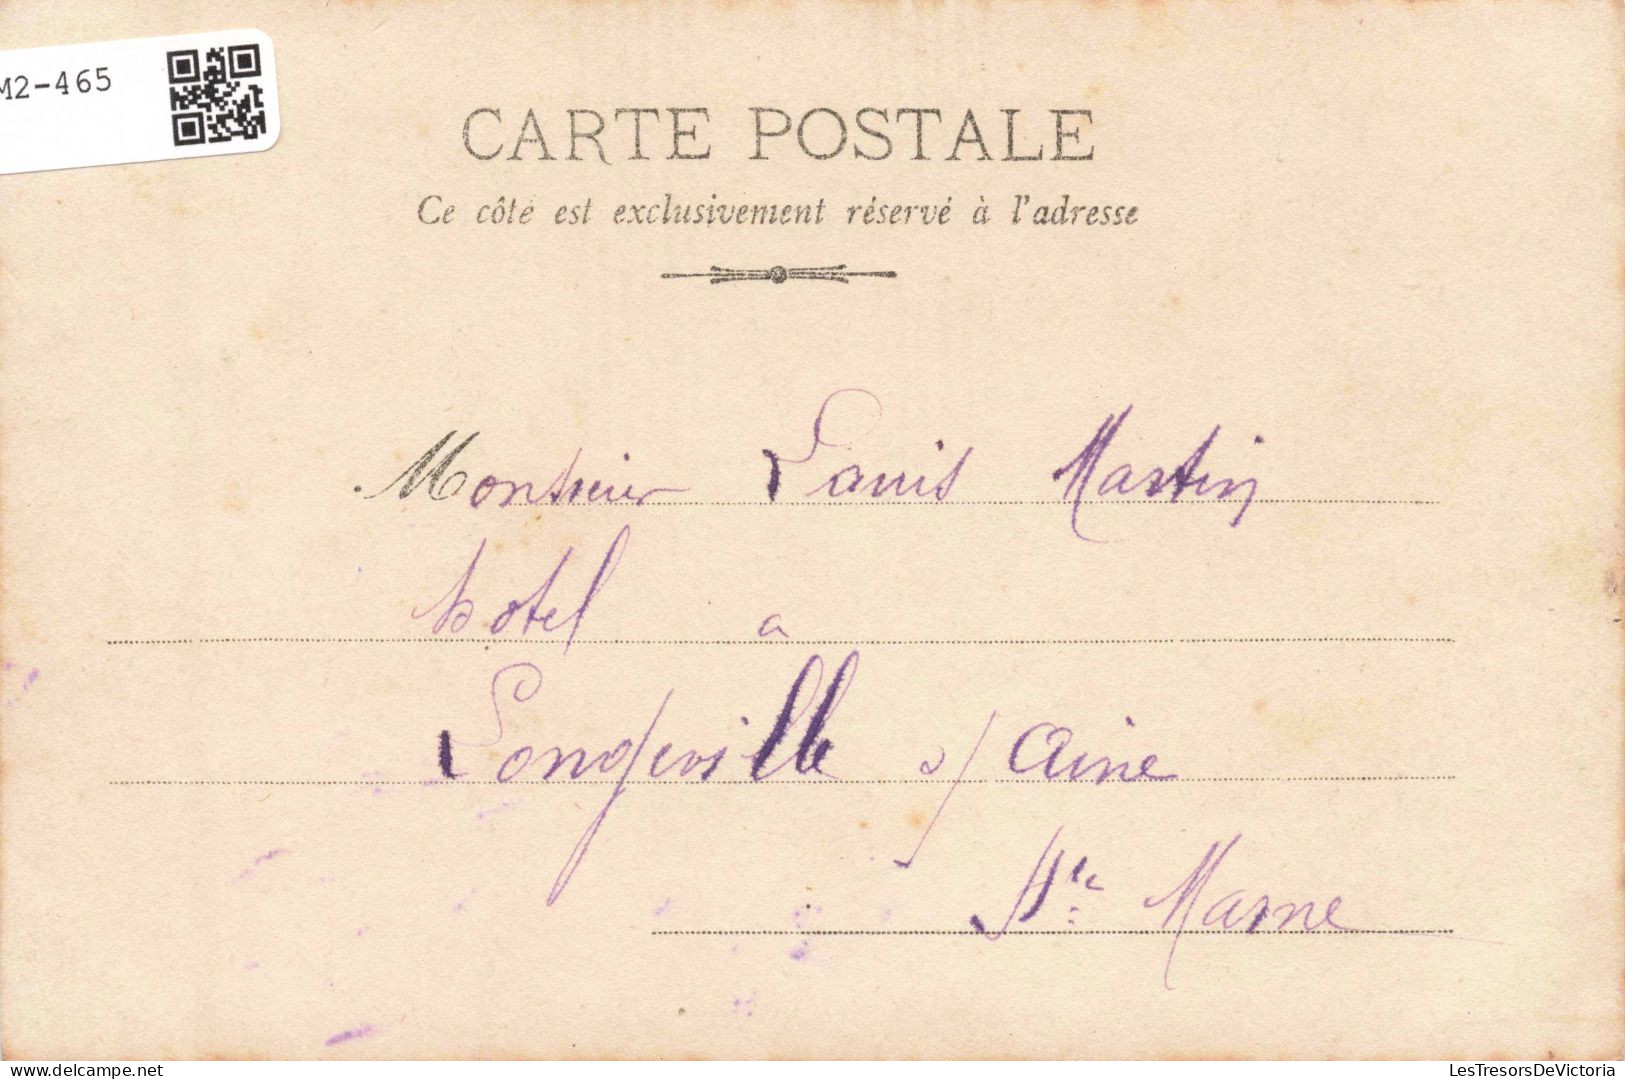 M2-465
CARTE POSTALE
Ce côté est exclusivement réservé à l'adresse
Monsieur Louis Martin
hotel a
Longeville s/ Aine
Hte Marne
LesTresorsDeVictoria